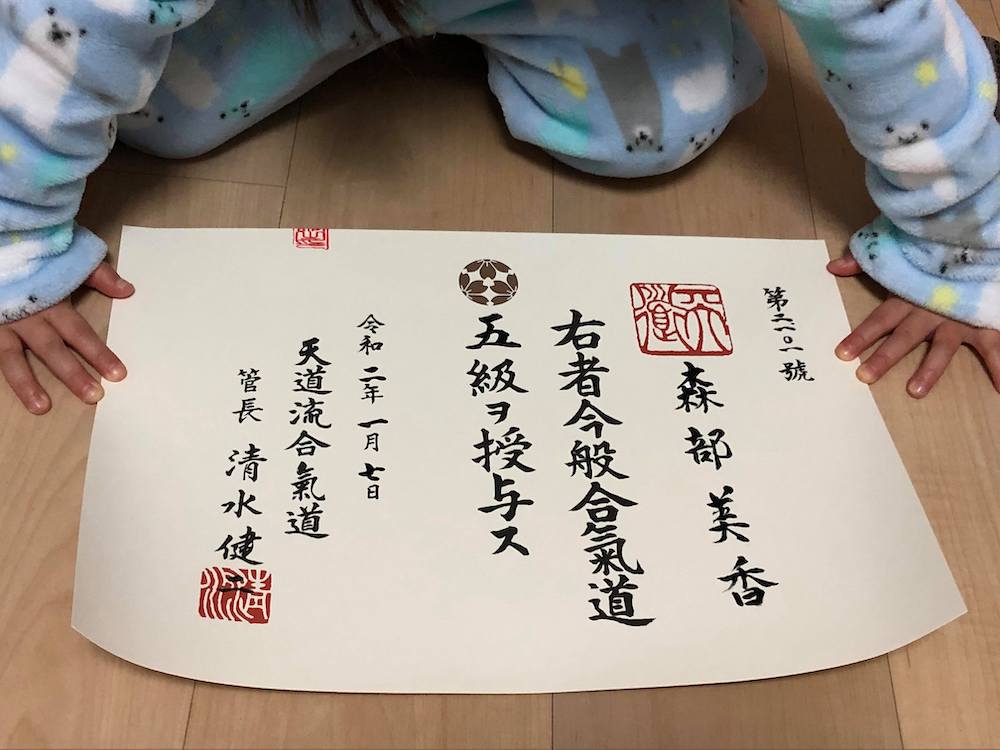 第二一〇一號
森部美香
右者今般合氣道
五級ヲ授与ス
令和二年一月七日
天道流合氣道
管長 清水健二
天道
清水